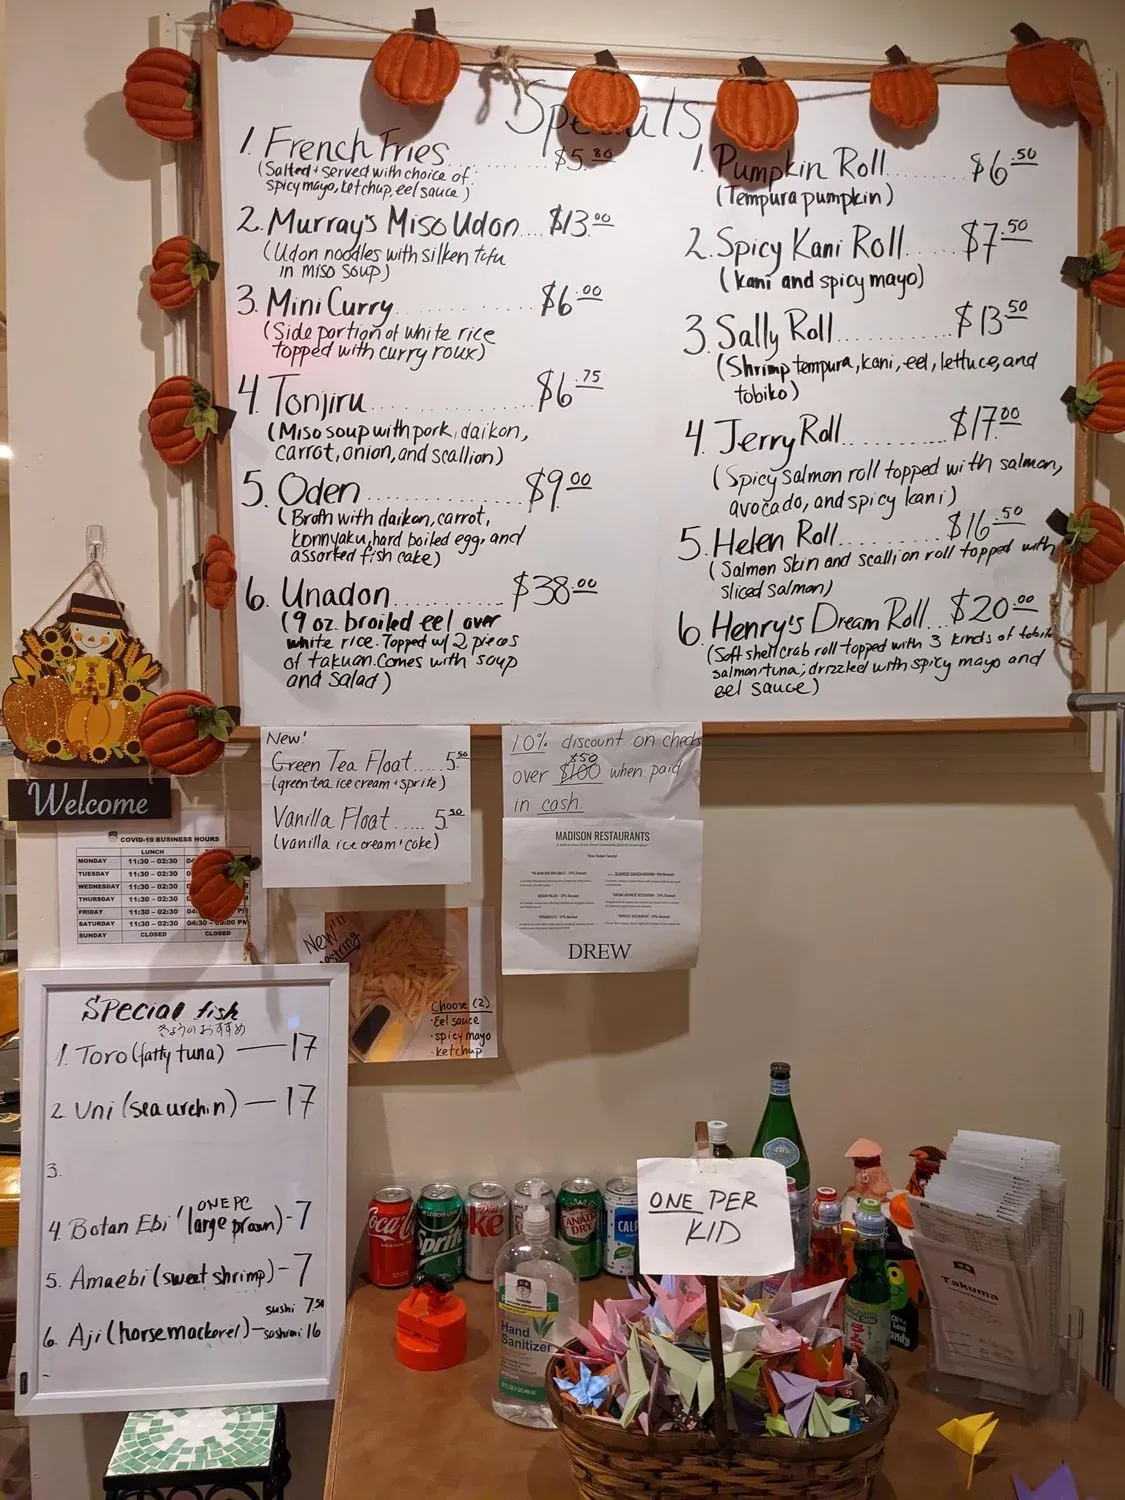 Specials
1. French Fries ........ $5.80
(Salted + served with choice of
spicy mayo, ketchup, eel sauce)
2. Murray's Miso Udon... $13.00
(Udon noodles with silken tofu
in miso soup)
3. Mini Curry ........ $6.00
(Side portion of white rice
topped with curry roux)
4. Tonjiru ............ $6.75
(Miso soup with pork, daikon,
carrot, onion, and scallion)
5. Oden ............ $9.00
(Broth with daikon, carrot,
konnyaku, hard boiled egg, and
assorted fish cake)
6. Unadon ............ $38.00
(9 oz. broiled eel over
white rice. Topped w/ 2 pieces
of takuan. Comes with soup
and salad)
1. Pumpkin Roll ........ $6.50
(Tempura pumpkin)
2. Spicy Kani Roll ..... $7.50
(kani and spicy mayo)
3. Sally Roll ......... $13.50
(Shrimp tempura, kani, eel, lettuce, and
tobiko)
4. Jerry Roll .......... $17.00
(Spicy salmon roll topped with salmon,
avocado, and spicy kani)
5. Helen Roll ......... $16.50
(Salmon Skin and scallion roll topped with
sliced salmon)
6. Henry's Dream Roll... $20.00
(Soft shell crab roll topped with 3 kinds of
salmon, tuna; drizzled with spicy mayo and
eel sauce)
Welcome
New!
Green Tea Float .... 5.50
(green tea ice cream + sprite)
Vanilla Float ..... 5.50
(vanilla ice cream + coke)
10% discount on checks
$50
over $100 when paid
in cash.
MADISON RESTAURANTS
DREW
COVID-19 BUSINESS HOURS
LUNCH
MONDAY 11:30 - 02:30
TUESDAY 11:30 - 02:30
WEDNESDAY 11:30 - 02:30
THURSDAY 11:30 - 02:30
FRIDAY 11:30 - 02:30
SATURDAY 11:30 - 02:30 04:30 - 09:00 PM
SUNDAY CLOSED CLOSED
New!!!
Choose (2)
· Eel sauce
· spicy mayo
· ketchup
Special fish
きょうのおすすめ
1. Toro (fatty tuna) — 17
2. Uni (sea urchin) — 17
3.
ONE PC
4. Botan Ebi (large prawn) - 7
5. Amaebi (sweet shrimp) - 7
sushi 7.50
6. Aji (horse mackerel) - sashimi 16
ONE PER
KID
Coca-Cola
Sprite
ke
CANADA DRY
Hand
Sanitizer
Takuma